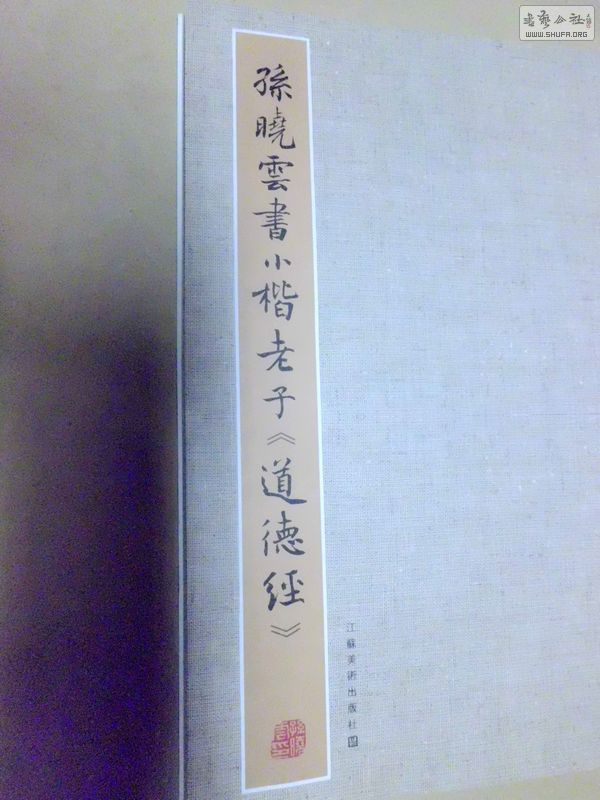 孫曉雲書小楷老子《道德經》
江蘇美術出版社
書藝公社
WWW.SHUFA.ORG